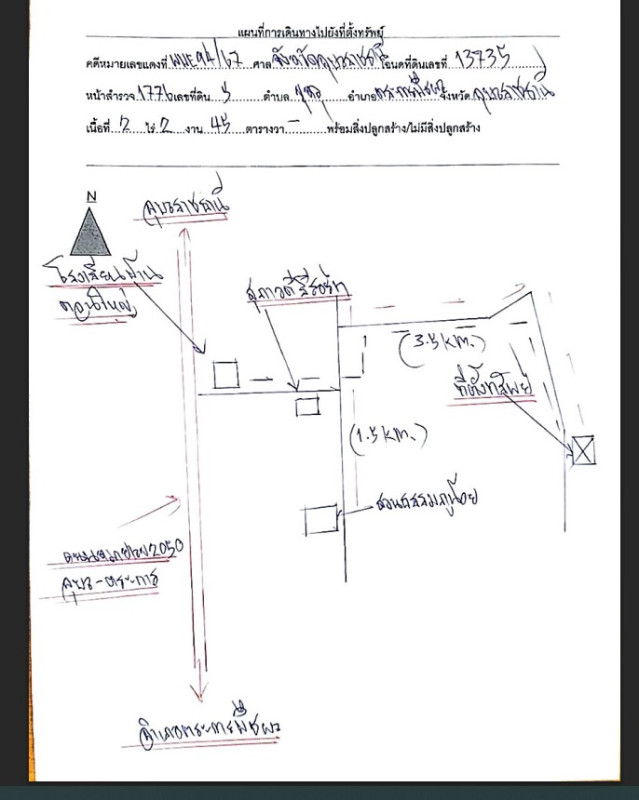 แผนที่การเดินทางไปยังที่ตั้งทรัพย์
คดีหมายเลขแดงที่ ผบE94/67 ศาล จังหวัดอุบลราชธานี โฉนดที่ดินเลขที่ 13735
หน้าสำรวจ 1776 เลขที่ดิน 5 ตำบล กุศกร อำเภอ ตระการพืชผล จังหวัด อุบลราชธานี
เนื้อที่ 2 ไร่ 2 งาน 45 ตารางวา - พร้อมสิ่งปลูกสร้าง/ไม่มีสิ่งปลูกสร้าง
N
อุบลราชธานี
โรงเรียนบ้าน
ดอนใหญ่
สุภาวดีรีสอร์ท
(3.5 km.)
ที่ตั้งทรัพย์
(1.5 km.)
สวนธรรมภูน้อย
2050
อุบล-ตระการ
อำเภอตระการพืชผล